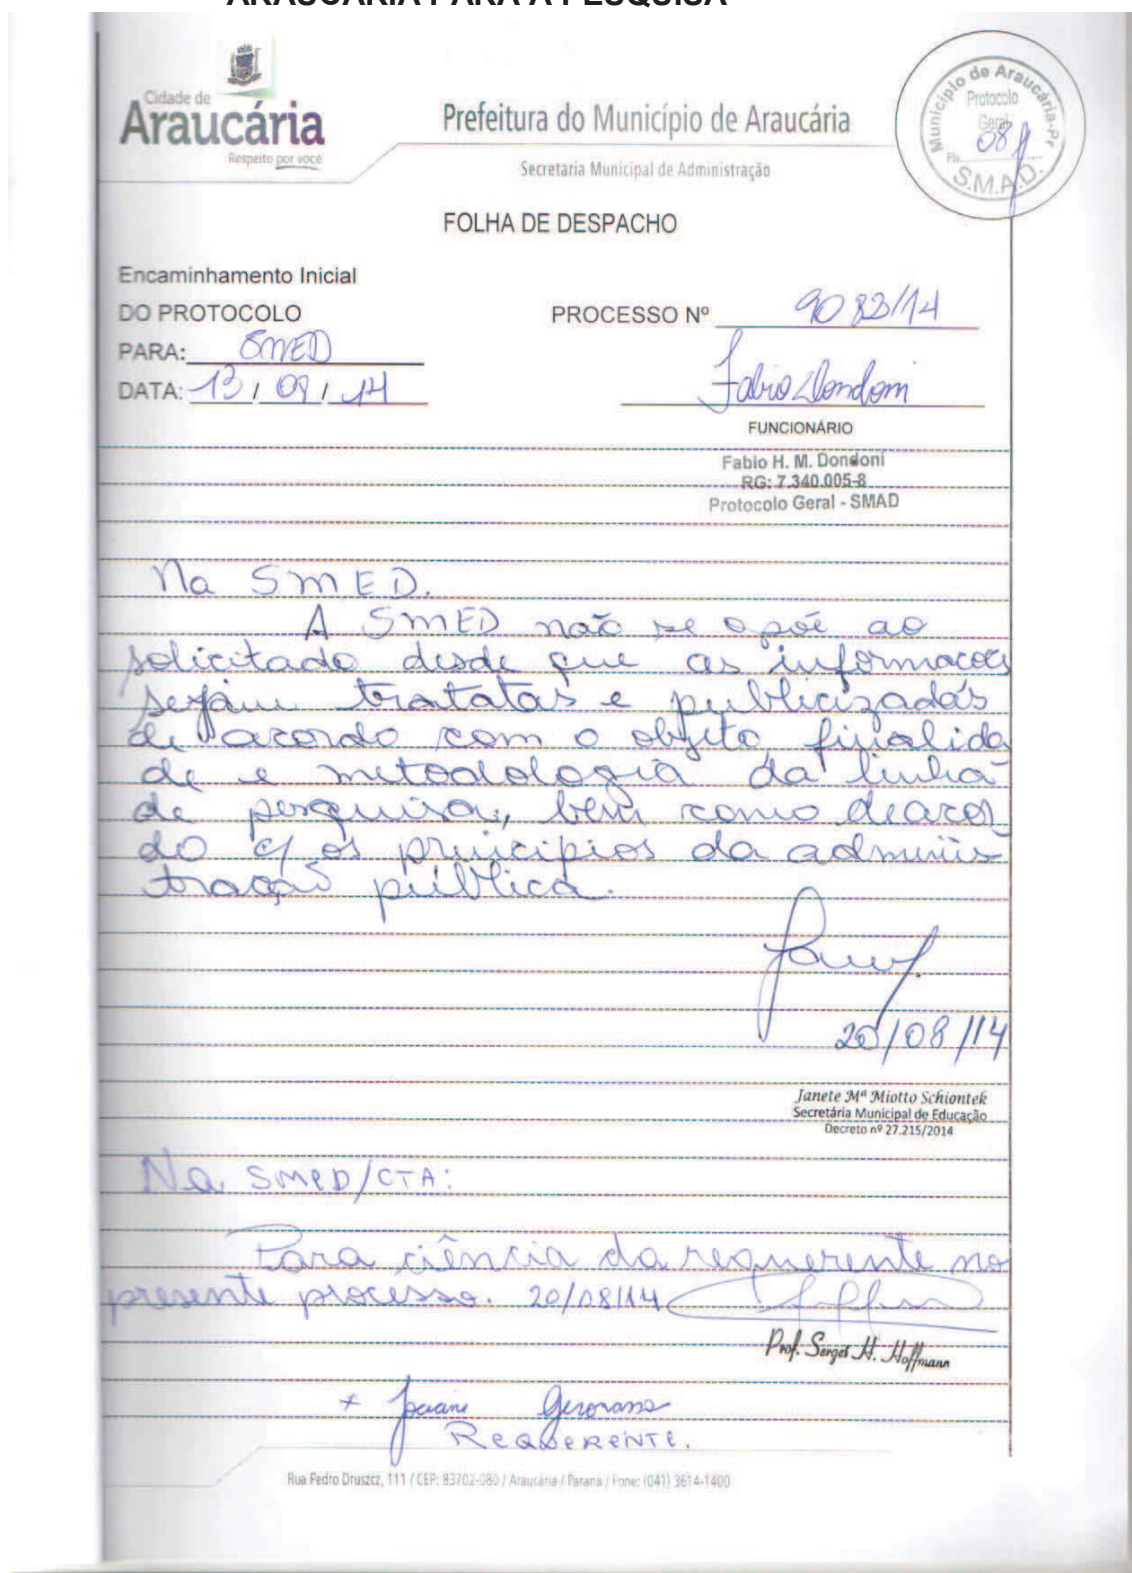 ARAUCÁRIA PARA A PESQUISA
Cidade de
Araucária
Respeito por você
Prefeitura do Município de Araucária
Secretaria Municipal de Administração
Município de Araucária-Pr
Protocolo
Geral
Fls. 08
S.M.A.D.
FOLHA DE DESPACHO
Encaminhamento Inicial
DO PROTOCOLO
PROCESSO Nº 9083/14
PARA: SMED
DATA: 13 / 09 / 14
Fabio Dondoni
FUNCIONÁRIO
Fabio H. M. Dondoni
RG: 7.340.005-8
Protocolo Geral - SMAD
Na SMED.
A SMED não se opõe ao
solicitado desde que as informacoes
sejam tratatas e publicizadas
de acordo com o objeto, finalida
de e metodologia da linha
de pesquisa, bem como deacor
do c/ os princípios da adminis
tração pública.
20/08/14
Janete Mª Miotto Schiontek
Secretária Municipal de Educação
Decreto nº 27.215/2014
Na SMED/CTA:
Para ciência da requerente no
presente processo. 20/08/14
Prof. Sergei H. Hoffmann
+
REQUERENTE.
Rua Pedro Druszcz, 111 / CEP: 83702-080 / Araucária / Paraná / Fone: (041) 3614-1400